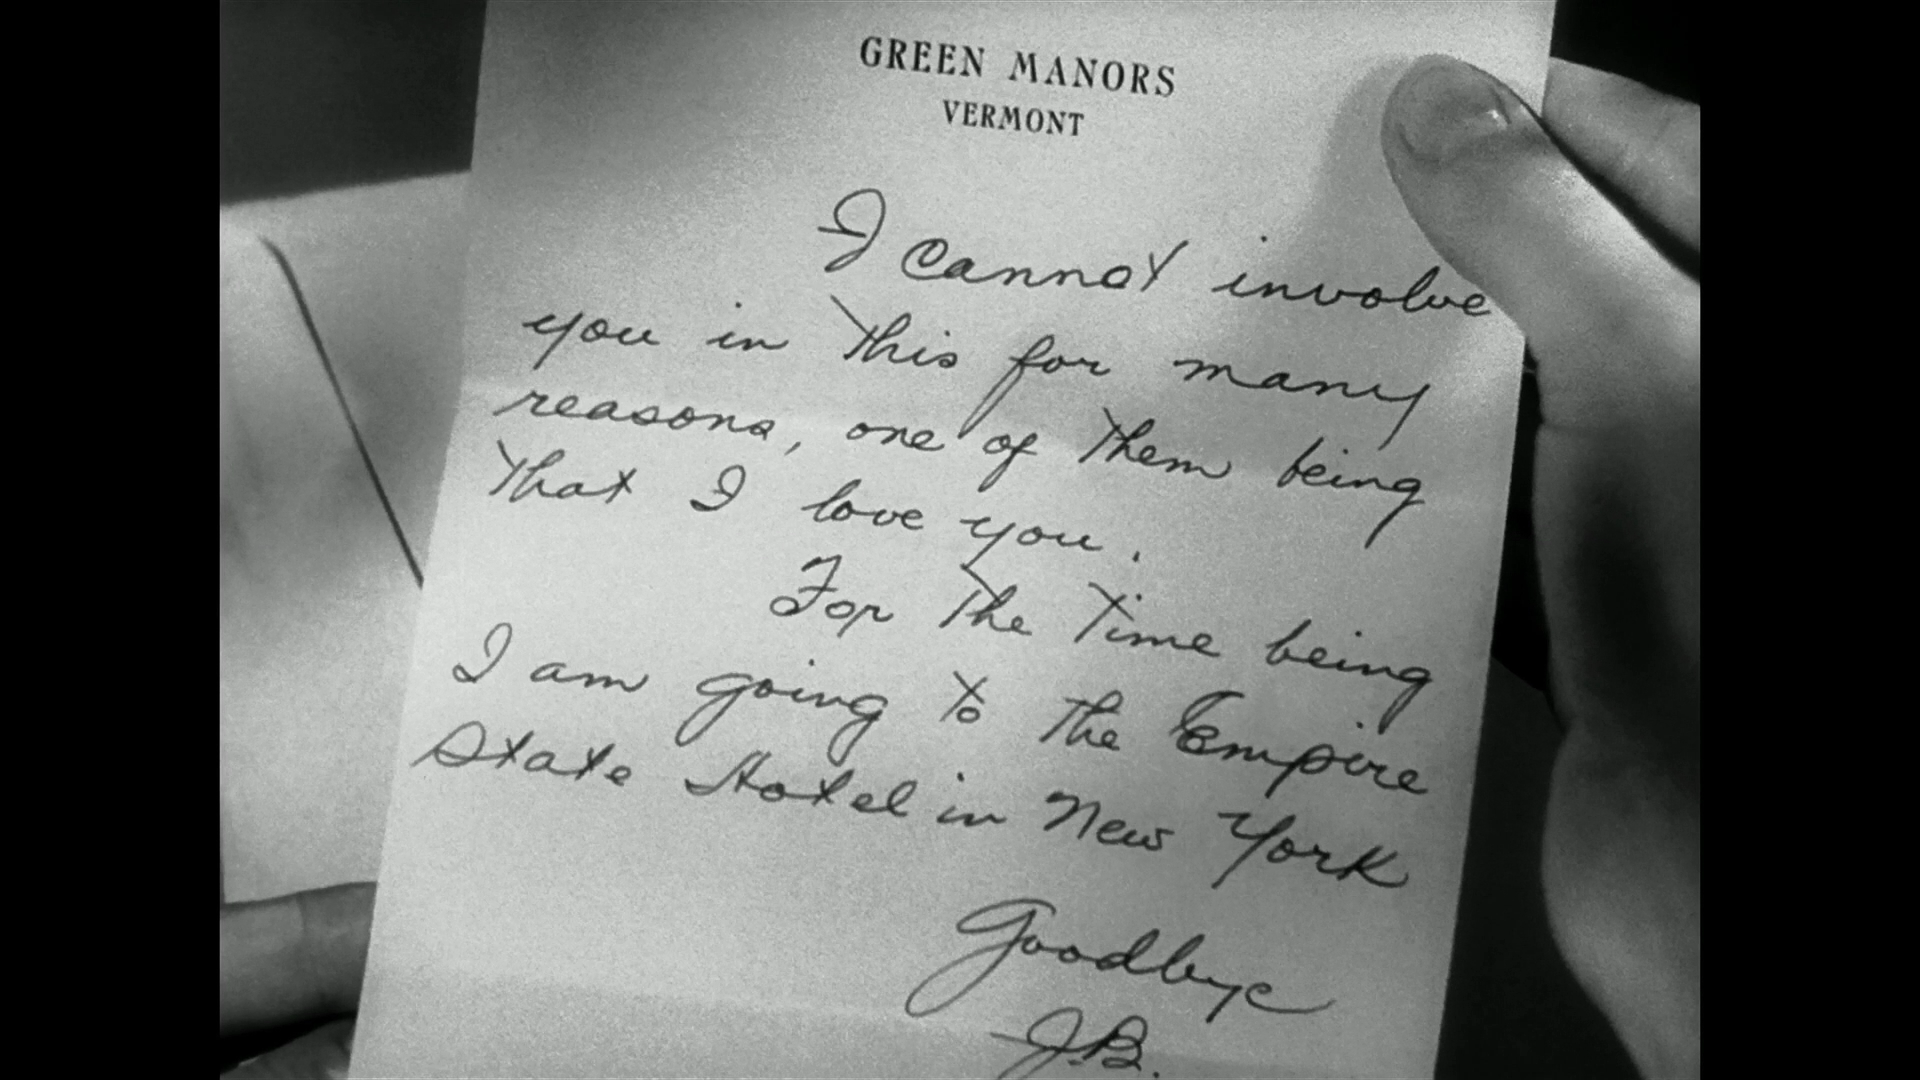 GREEN MANORS
VERMONT
I cannot involve
you in this for many
reasons, one of them being
that I love you.
For the time being
I am going to the Empire
State Hotel in New York
Goodbye
J.B.